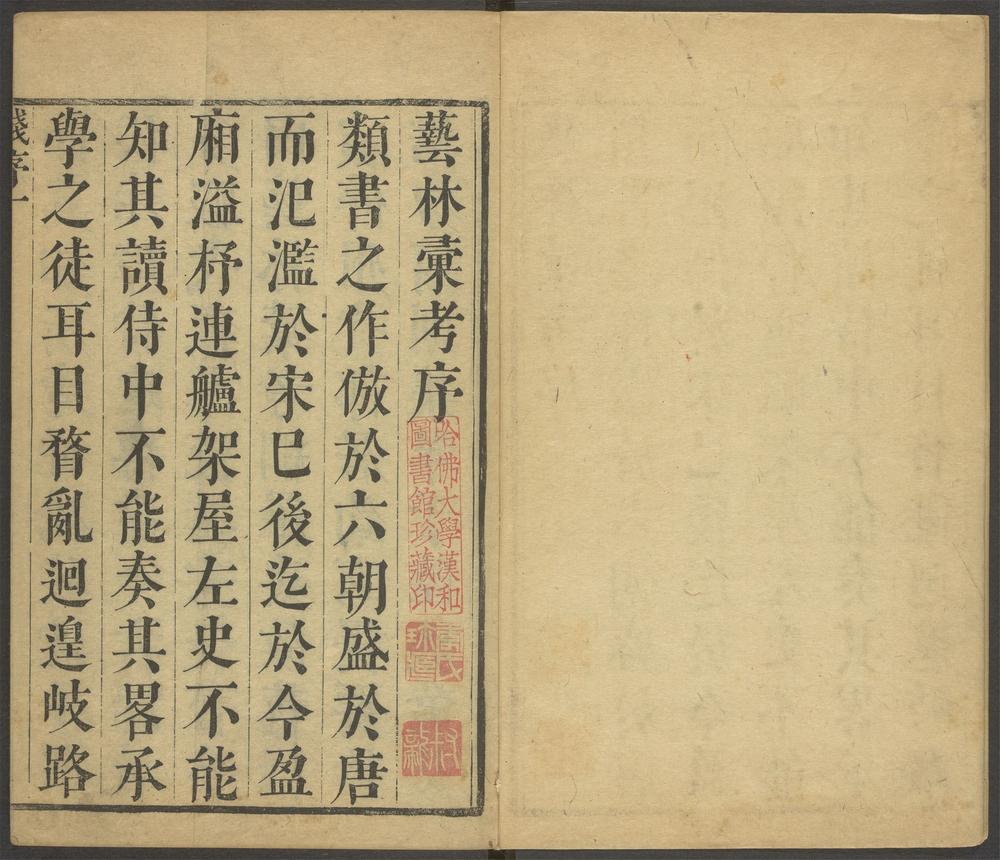 藝林彙考序
哈佛大學漢和
圖書館珍藏印
類書之作倣於六朝盛於唐
而氾濫於宋巳後迄於今盈
廂溢杼連艫架屋左史不能
知其讀侍中不能奏其畧承
學之徒耳目瞀亂迴遑岐路
序一